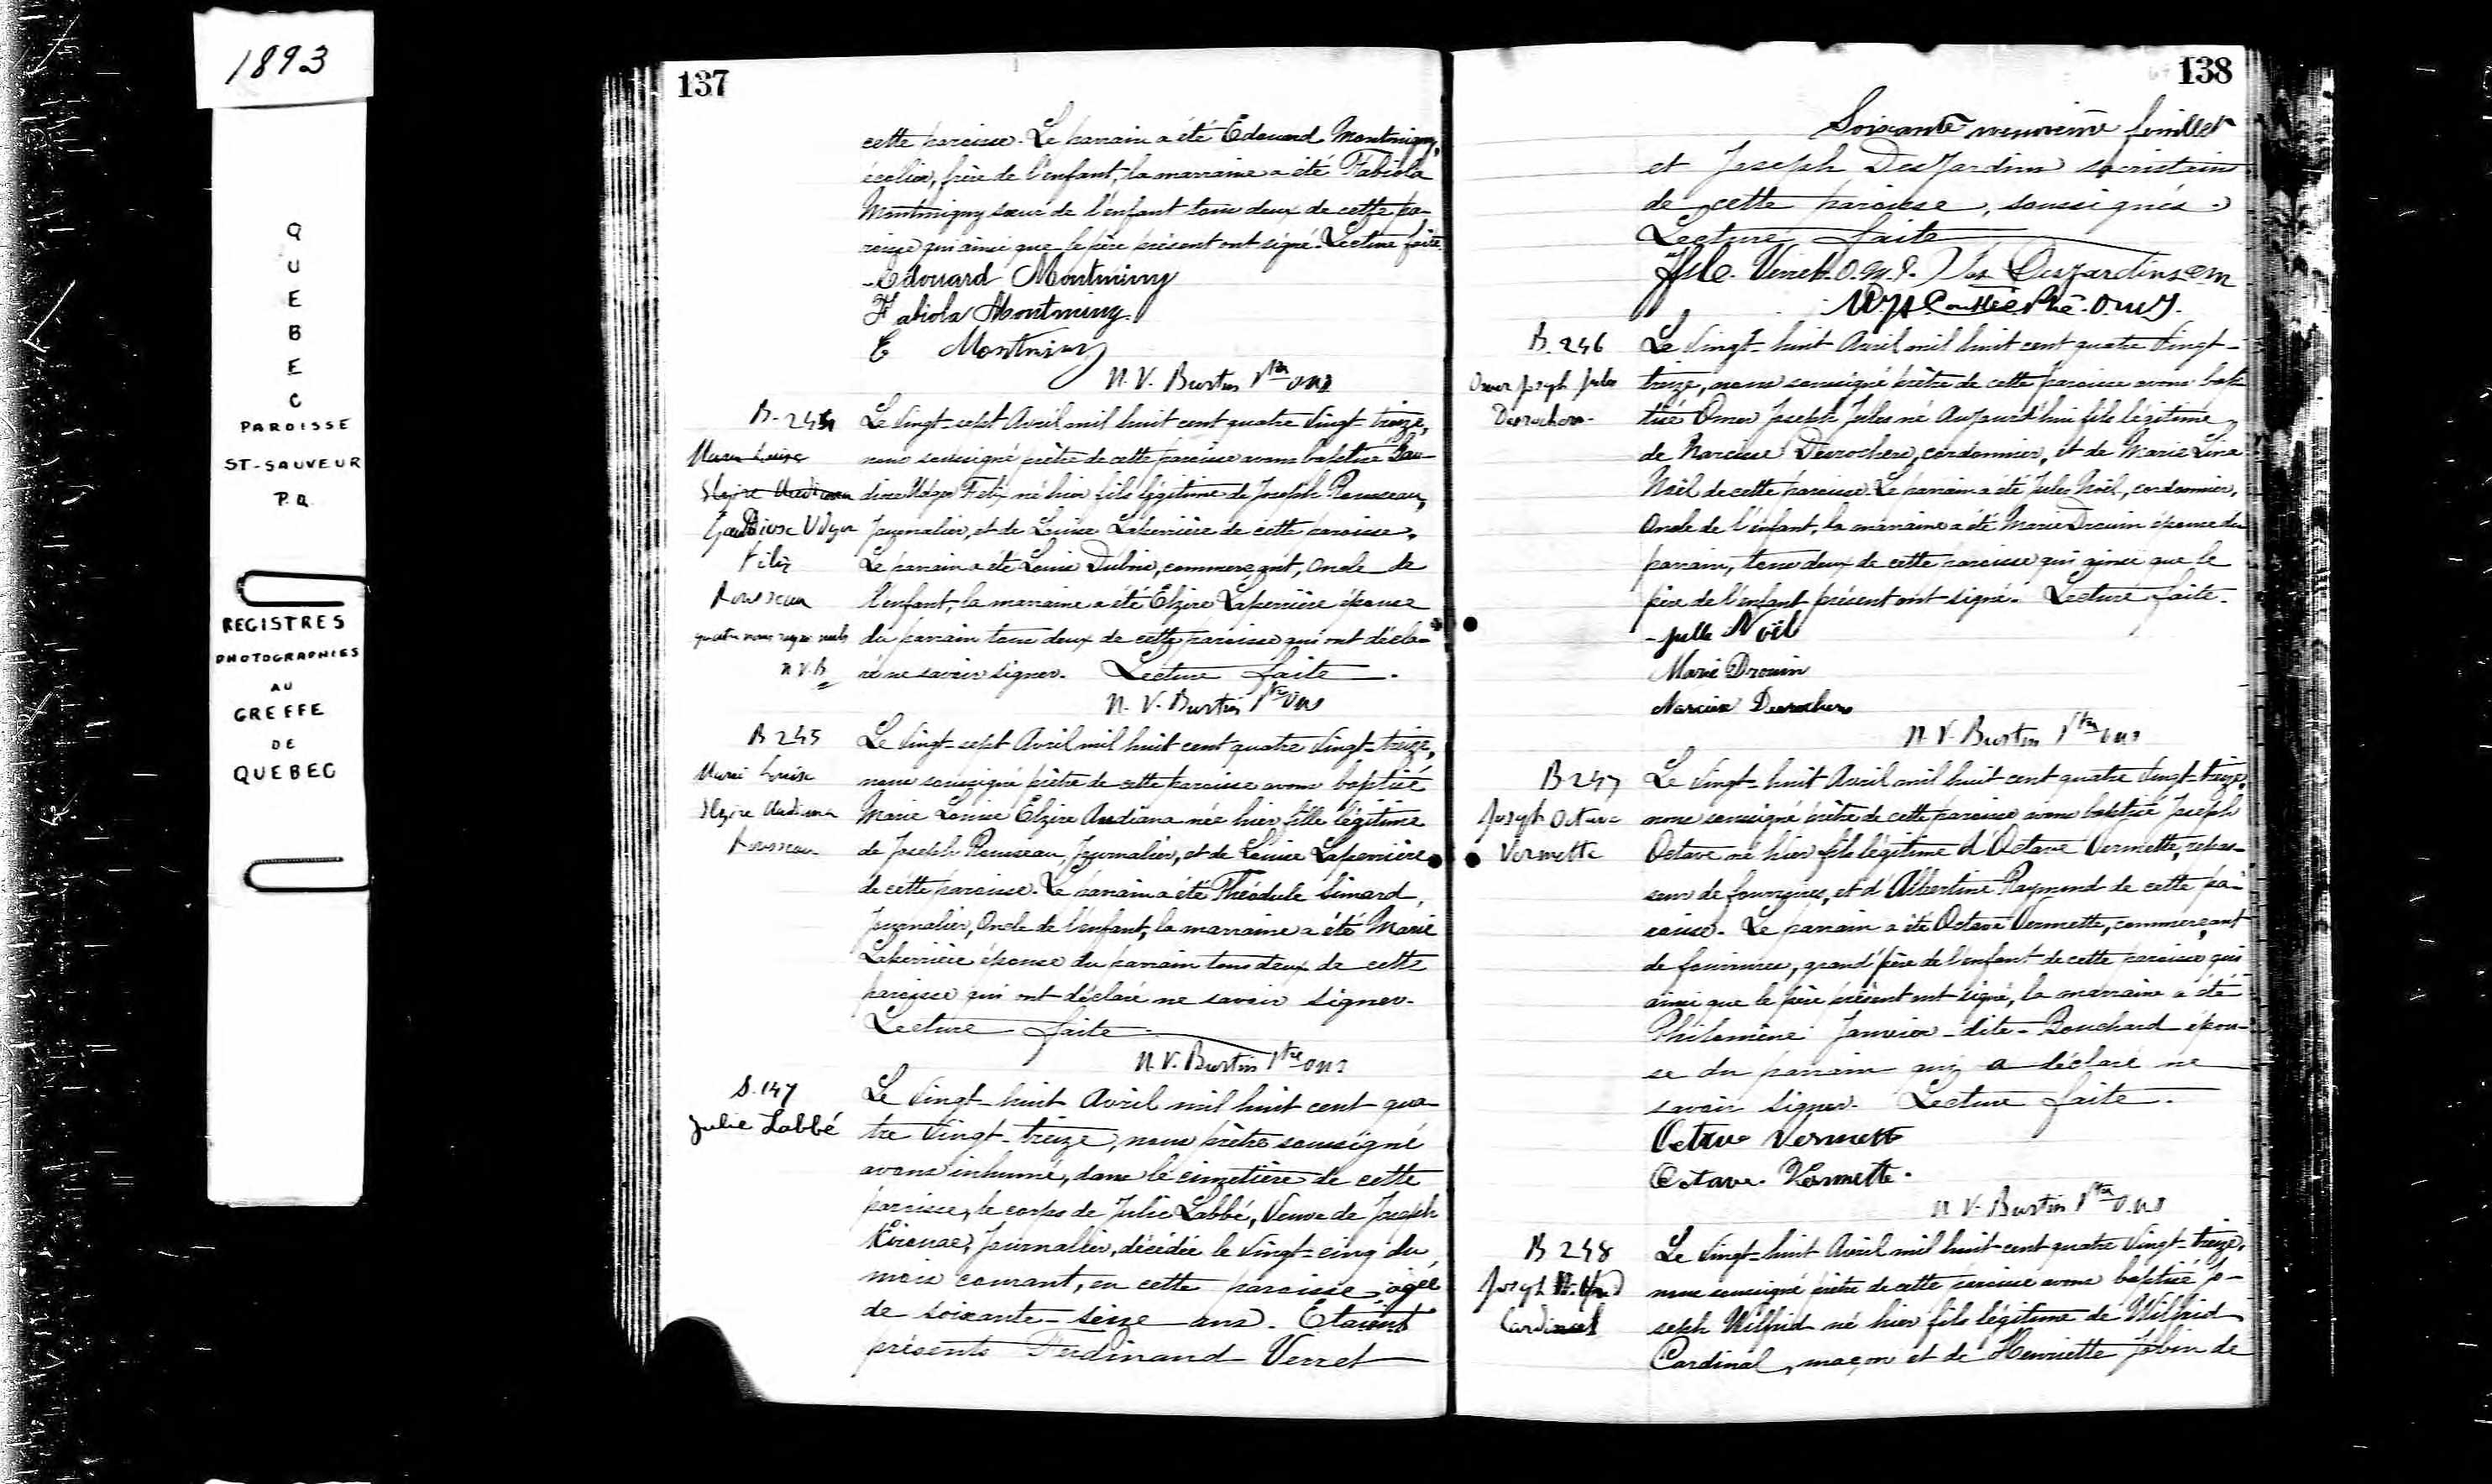 1893
QUEBEC
PAROISSE
ST-SAUVEUR
P.Q.
REGISTRES
PHOTOGRAPHIES
AU
GREFFE
DE
QUEBEC
137
cette paroisse. Le parrain a été Edouard Montminy,
écolier, frère de l'enfant, la marraine a été Fabiola
Montminy sœur de l'enfant tous deux de cette pa-
roisse qui ainsi que le père présent ont signé. Lecture faite
Edouard Montminy
Fabiola Montminy.
E Montminy
N. V. Burtin Ptre OMI
B-244
Marie Louise
Elzire Audiana
Gaudiose Udger
Félix
Rousseau
quatre mots rayés nuls
N.V.B
Le vingt-sept Avril mil huit cent quatre vingt-treize,
nous soussigné prêtre de cette paroisse avons baptisé Gau-
diose Udger Felix né hier fils légitime de Joseph Rousseau,
Journalier, et de Louise Laperrière de cette paroisse.
Le parrain a été Louis Dubois, commerçant, Oncle de
l'enfant, la marraine a été Elzire Laperrière épouse
du parrain tous deux de cette paroisse qui ont décla-
ré ne savoir signer. Lecture faite.
N. V. Burtin Ptre OMI
B 245
Marie Louise
Elzire Audiana
Rousseau
Le vingt-sept Avril mil huit cent quatre vingt-treize,
nous soussigné prêtre de cette paroisse avons baptisé
Marie Louise Elzire Audiana née hier fille légitime
de Joseph Rousseau, Journalier, et de Louise Laperrière
de cette paroisse. Le parrain a été Théodule Simard,
Journalier, Oncle de l'enfant, la marraine a été Marie
Laperrière épouse du parrain tous deux de cette
paroisse qui ont déclaré ne savoir signer.
Lecture faite.
N. V. Burtin Ptre OMI
S. 147
Julie Labbé
Le vingt-huit Avril mil huit cent qua-
tre vingt-treize, nous prêtre soussigné
avons inhumé, dans le cimetière de cette
paroisse, le corps de Julie Labbé, Veuve de Joseph
Journalier, décédée le vingt-cinq du
mois courant, en cette paroisse, agée
de soixante-seize ans. Etaient
présents Ferdinand Verret
138
Soixante neuvième feuillet
et Joseph DesJardins sacristain
de cette paroisse, soussignés.
Lecture faite
Verret O.M.I. Jos Desjardins
Ptre O.M.I.
B. 246
Omer Joseph Jules
Desrochers
Le vingt-huit Avril mil huit cent quatre vingt-
treize, nous soussigné prêtre de cette paroisse avons bap-
tisé Omer Joseph Jules né Aujourd'hui fils légitime
de Narcisse Desrochers, cordonnier, et de Marie Lina
Noël de cette paroisse. Le parrain a été Jules Noël, cordonnier,
Oncle de l'enfant, la marraine a été Marie Drouin épouse du
parrain, tous deux de cette paroisse qui ainsi que le
père de l'enfant présent ont signé. Lecture faite.
Julle Noël
Marie Drouin
Narcisse Desrochers
N. V. Burtin Ptre OMI
B 247
Joseph Octave
Vermette
Le vingt-huit Avril mil huit cent quatre vingt-treize,
nous soussigné prêtre de cette paroisse avons baptisé Joseph
Octave né hier fils légitime d'Octave Vermette, repas-
seur de fourrures, et d'Albertine Raymond de cette pa-
roisse. Le parrain a été Octave Vermette, commerçant
de fourrures, grand'père de l'enfant de cette paroisse qui
ainsi que le père présent ont signé, la marraine a été
Philomène Janvier-dite-Bouchard épou-
se du parrain qui a déclaré ne
savoir signer. Lecture faite.
Octave Vermette
Octave Vermette.
N. V. Burtin Ptre O.M.I
B 248
Joseph Wilfrid
Cardinal
Le vingt-huit Avril mil huit cent quatre vingt-treize,
nous soussigné prêtre de cette paroisse avons baptisé Jo-
seph Wilfrid né hier fils légitime de Wilfrid
Cardinal, maçon et de Henriette Jobin de